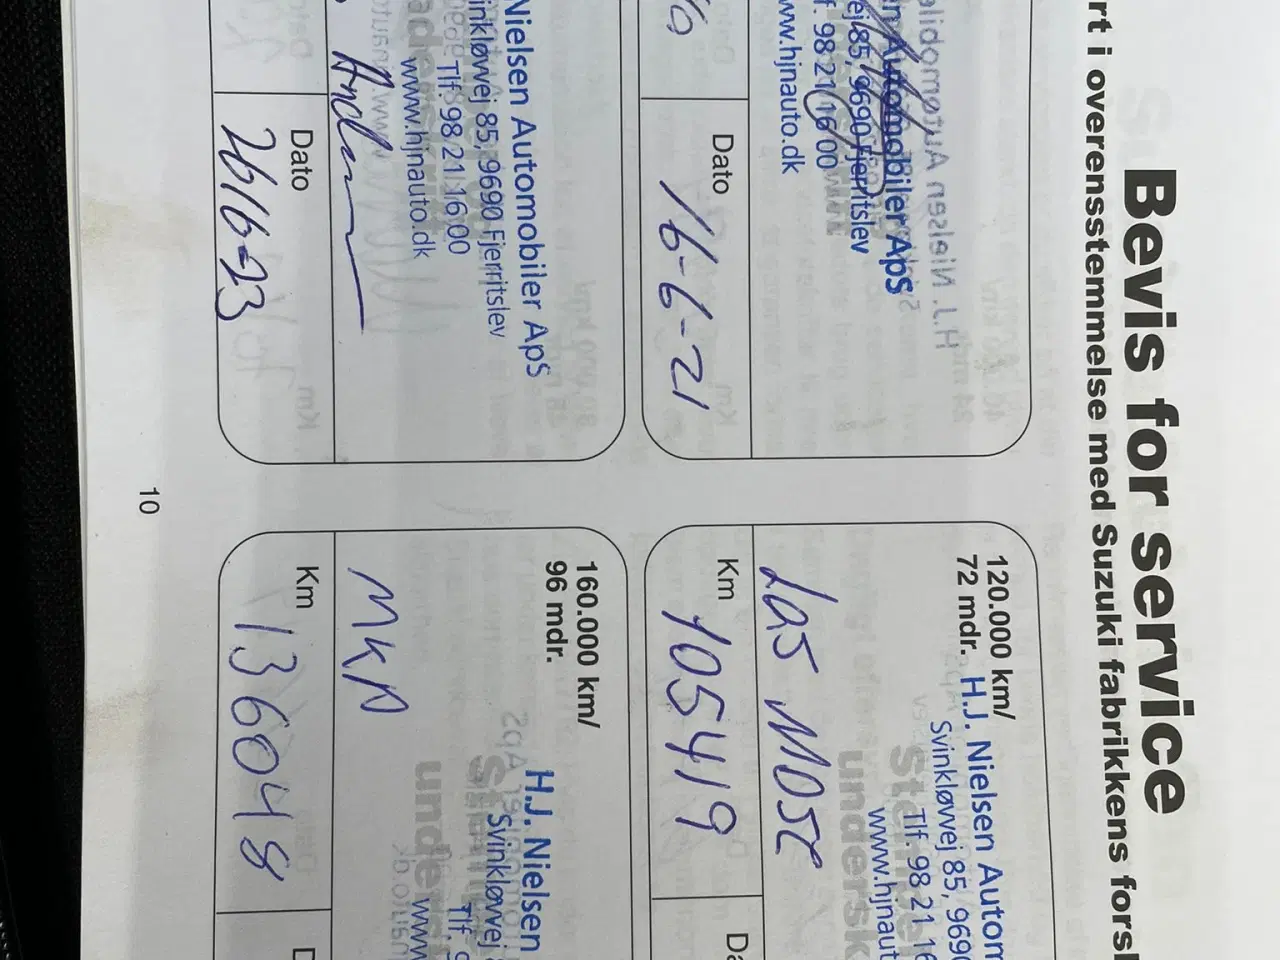 Bevis for service
rt i overensstemmelse med Suzuki fabrikkens forsk
en Automobiler ApS
ej 85, 9690 Fjerritslev
f. 98 21 16 00
www.hjnauto.dk
Dato
16-6-21
120.000 km/
72 mdr.
H.J. Nielsen Autom
Svinkløvvej 85, 969
Tlf. 98 21 16
www.hjnaut
Km
105419
Da
Nielsen Automobiler ApS
inkløvvej 85, 9690 Fjerritslev
Tlf. 98 21 16 00
www.hjnauto.dk
Dato
26/6-23
160.000 km/
96 mdr.
H.J. Nielsen
Svinkløvvej
Tlf. 9
www
MKP
Km
136048
D
10